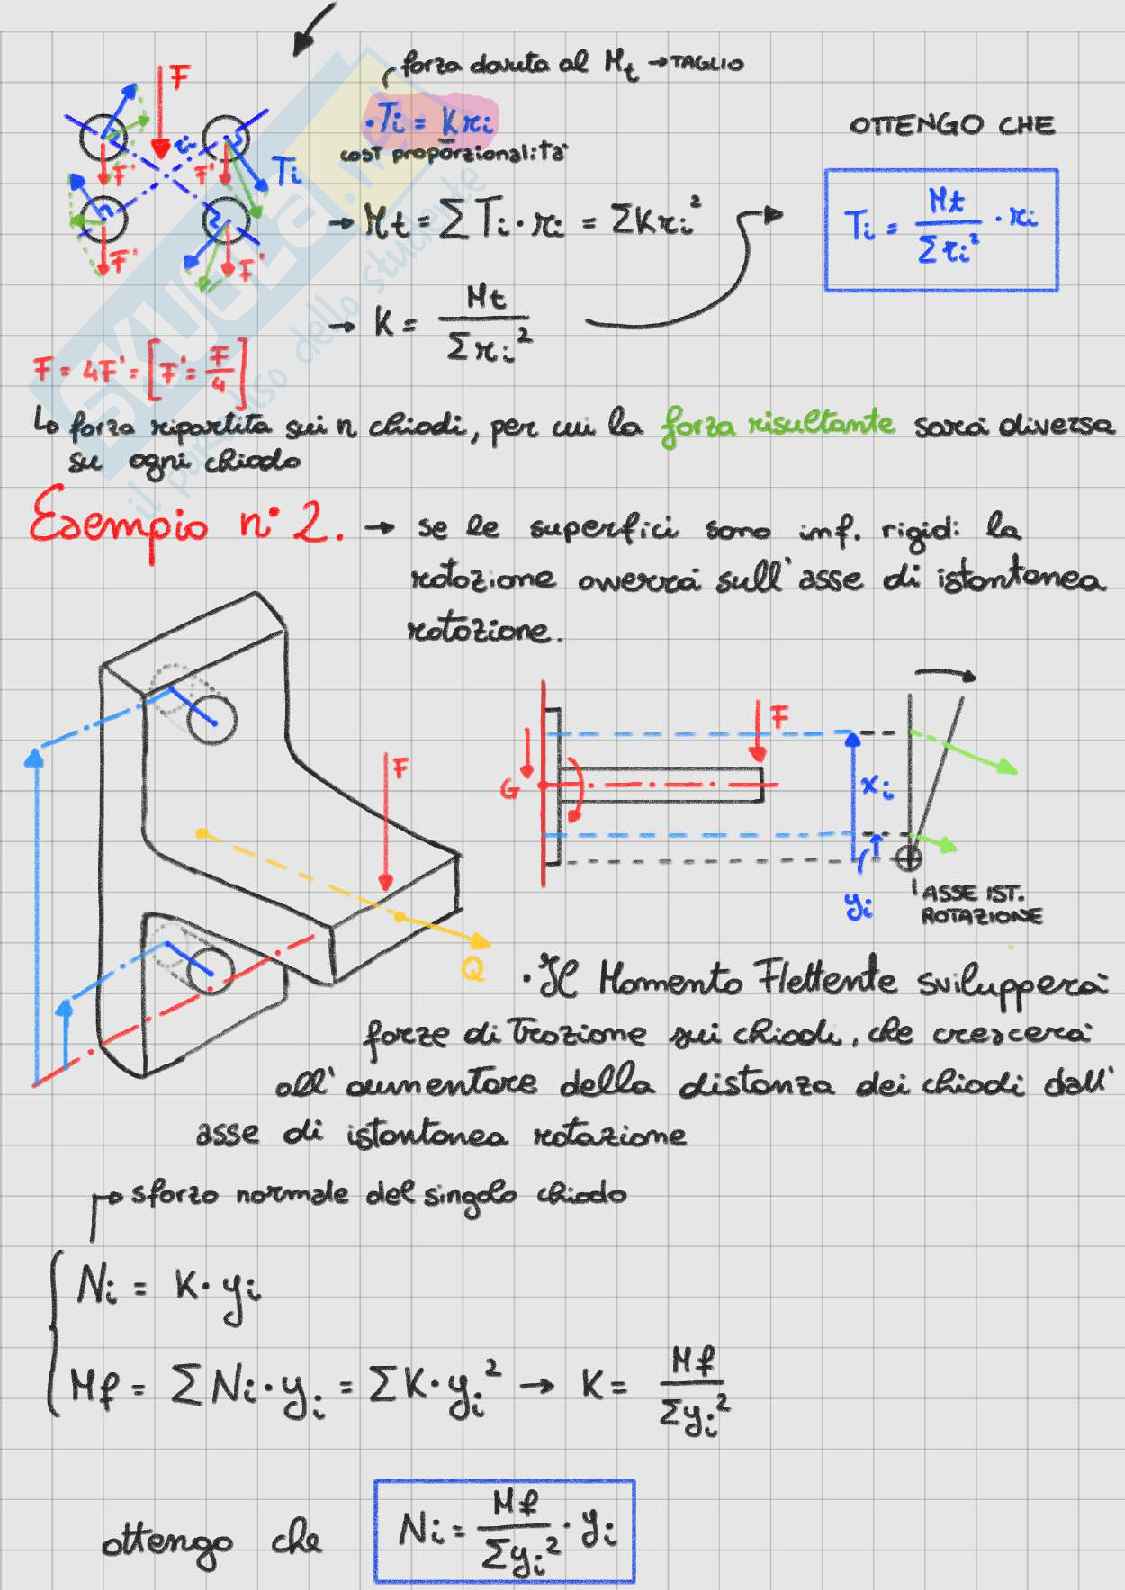 forza dovuta al Mt → TAGLIO
F
· Ti = K ri
cost proporzionalità
OTTENGO CHE
Ti
F' F'
F' F'
→ Mt = Σ Ti · ri = Σ K ri²
Ti = Mt / Σ ri² · ri
→ K = Mt / Σ ri²
F = 4F' = [F' = F/4]
↳ forza ripartita sui n chiodi, per cui la forza risultante sarà diversa
su ogni chiodo
Esempio n° 2. → se le superfici sono inf. rigid: la
rotazione avverrà sull'asse di istantanea
rotazione.
F
F
G
xi
yi
ASSE IST.
ROTAZIONE
Q
· Il Momento Flettente svilupperà
forze di Trazione sui chiodi, che crescerà
all'aumentare della distanza dei chiodi dall'
asse di istantanea rotazione
→ sforzo normale del singolo chiodo
Ni = K · yi
Mf = Σ Ni · yi = Σ K · yi² → K = Mf / Σ yi²
ottengo che Ni = Mf / Σ yi² · yi